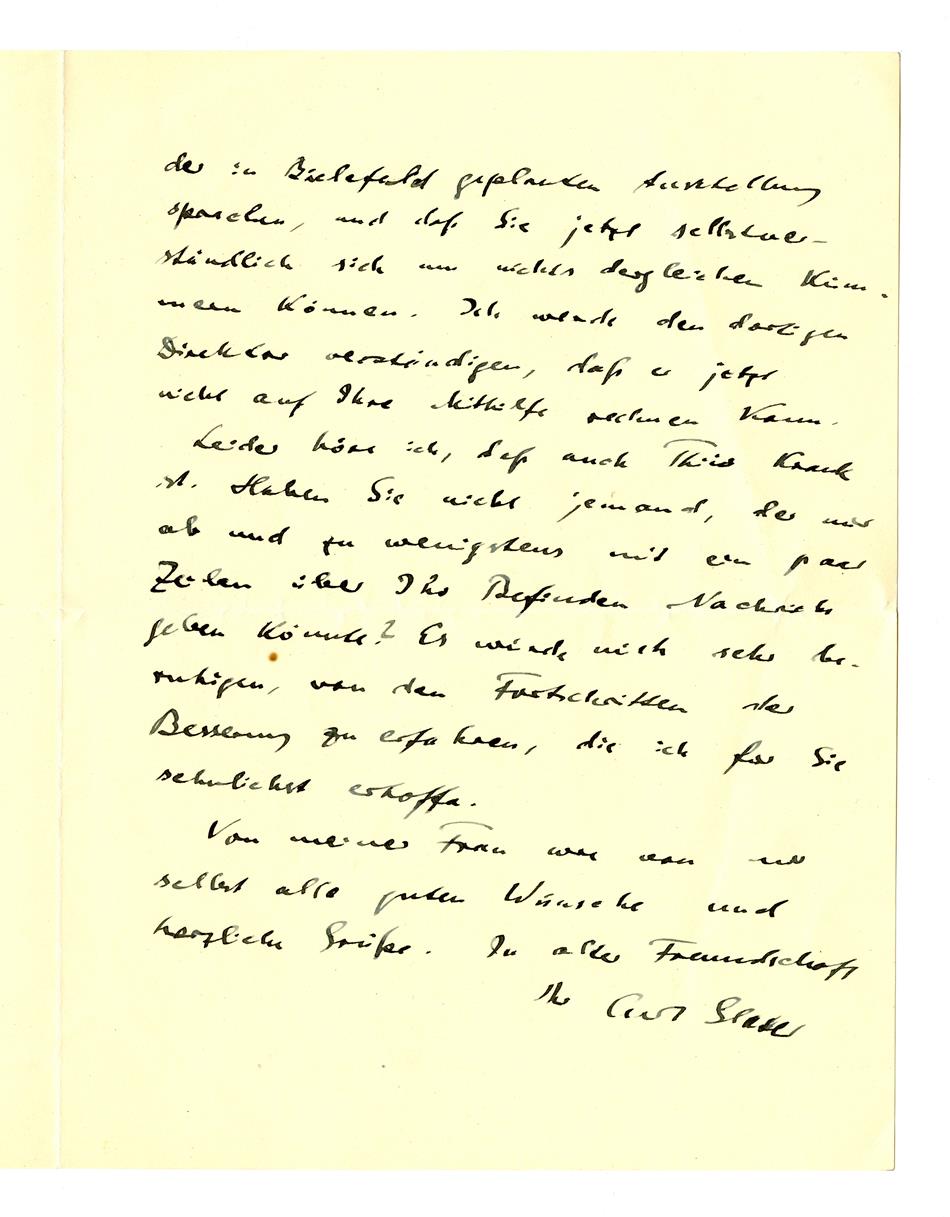 der in Bielefeld geplanten Ausstellung
sprachen, und daß Sie jetzt selbstver-
ständlich sich um nichts dergleichen küm-
mern können. Ich werde den dortigen
Direktor verständigen, daß er jetzt
nicht auf Ihre Mithilfe rechnen kann.
Leider höre ich, daß auch Thiis krank
ist. Haben Sie nicht jemand, der mir
ab und zu wenigstens mit ein paar
Zeilen über Ihr Befinden Nachricht
geben könnte? Es würde mich sehr be-
ruhigen, von den Fortschritten der
Besserung zu erfahren, die ich für Sie
sehnlichst erhoffe.
Von meiner Frau wie von mir
selbst alle guten Wünsche und
herzliche Grüße. In alter Freundschaft
Ihr Curt Glaser